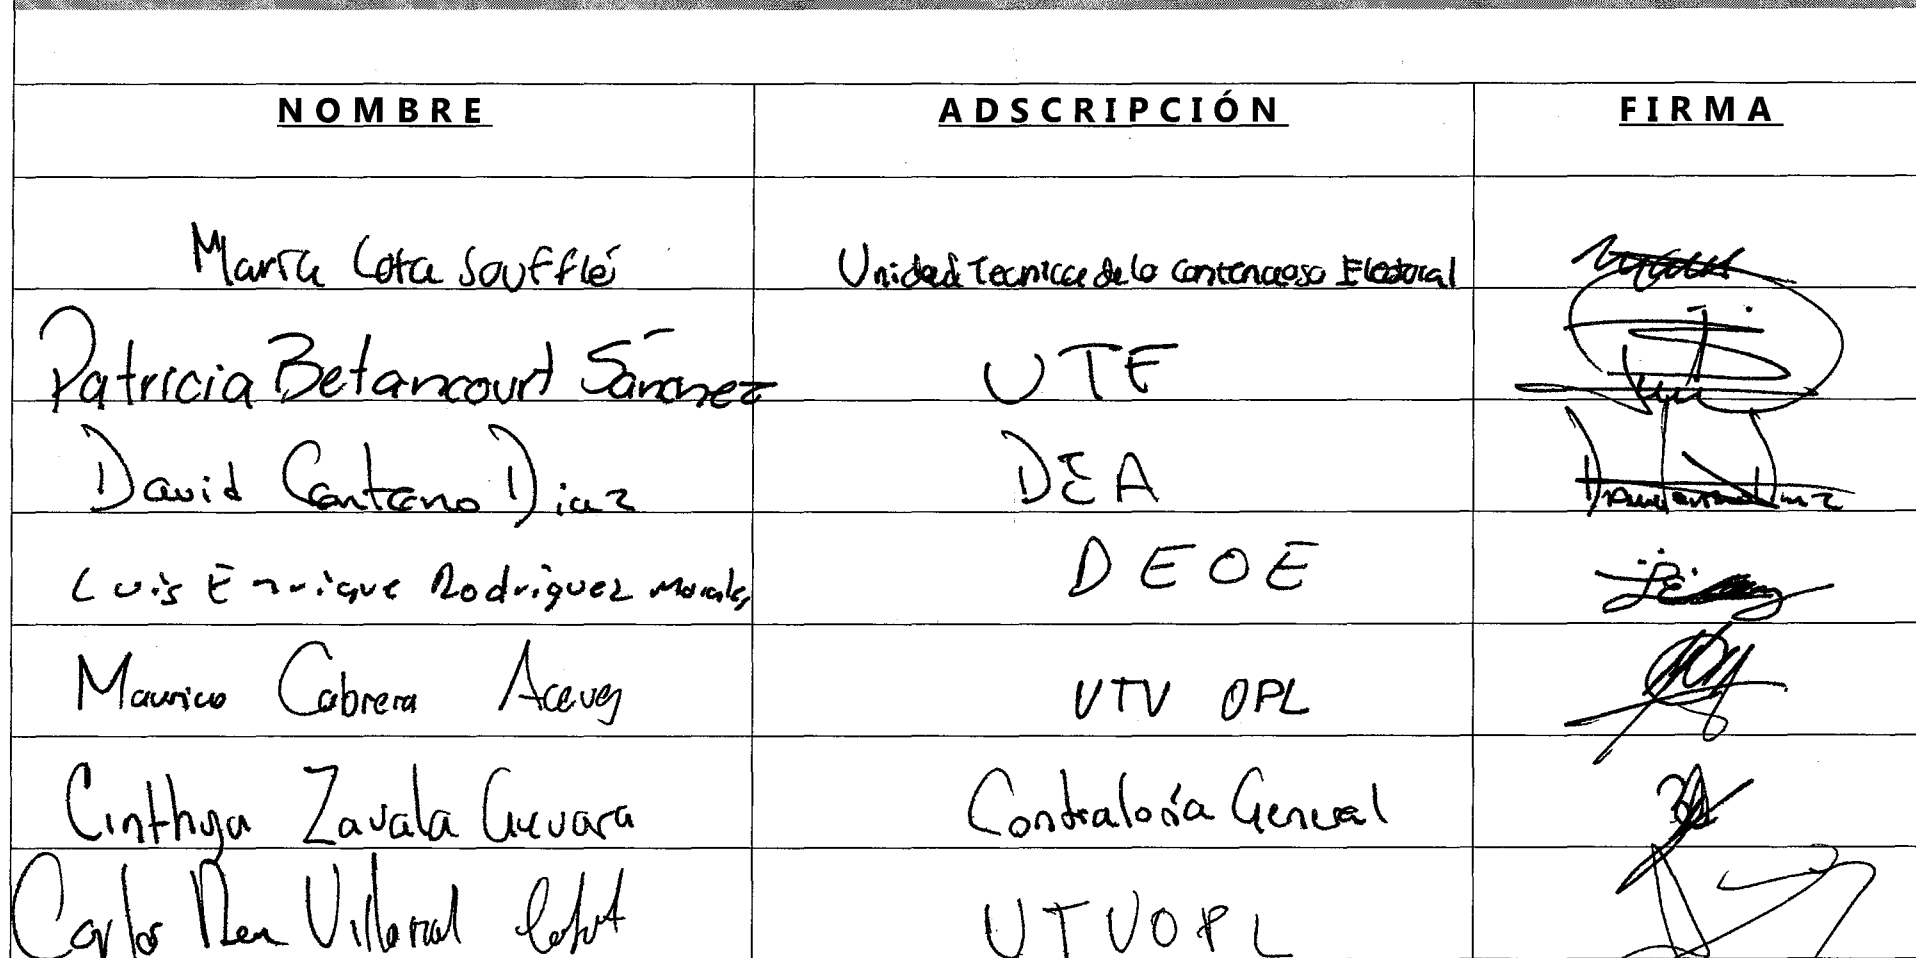 NOMBRE ADSCRIPCIÓN FIRMA
María Cota Soufflé Unidad Tecnica de lo Contencioso Electoral
Patricia Betancourt Sánchez UTF
David Centeno Diaz DEA
Luis Enrique Rodríguez Morales DEOE
Mauricio Cabrera Aceves UTV OPL
Cinthya Zavala Guevara Contraloría General
Carlos Villarreal UTVOPL